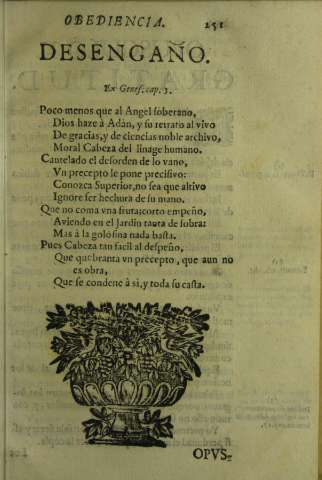 OBEDIENCIA. 251
DESENGAÑO.
Ex Genes. cap. 3.
Poco menos que al Angel soberano,
Dios haze à Adàn, y su retrato al vivo
De gracias, y de ciencias noble archivo,
Moral Cabeza del linage humano.
Cautelado el desorden de lo vano,
Vn precepto le pone precisivo:
Conozca Superior, no sea que altivo
Ignore ser hechura de su mano.
Que no coma vna fruta: corto empeño,
Aviendo en el Jardin tanta de sobra:
Mas à la golosina nada basta.
Pues Cabeza tan facil al despeño,
Que quebranta vn precepto, que aun no
es obra,
Que se condene à si, y toda su casta.
OPVS-